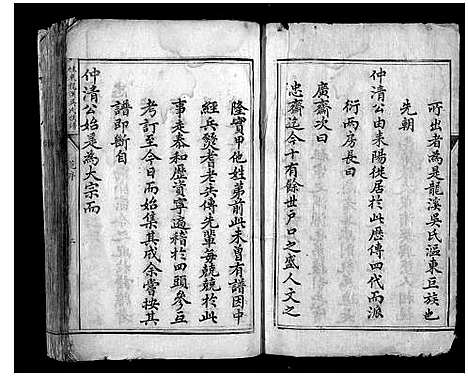 所出者為是龍溪吳氏漚東巨族也
先朝
仲清公由耒陽徙居於此歷傳四代而派
衍兩房長曰
廣齋次曰
忠齋迄今十有餘世戶口之盛人文之
隆實甲他姓弟前此未曾有譜因中
經兵燹耆老失傳先輩每兢兢於此
事走泰和歷資寧遍稽於四頭參互
考訂至今日而始集其成余嘗按其
譜即斷自
仲清公始是為大宗而